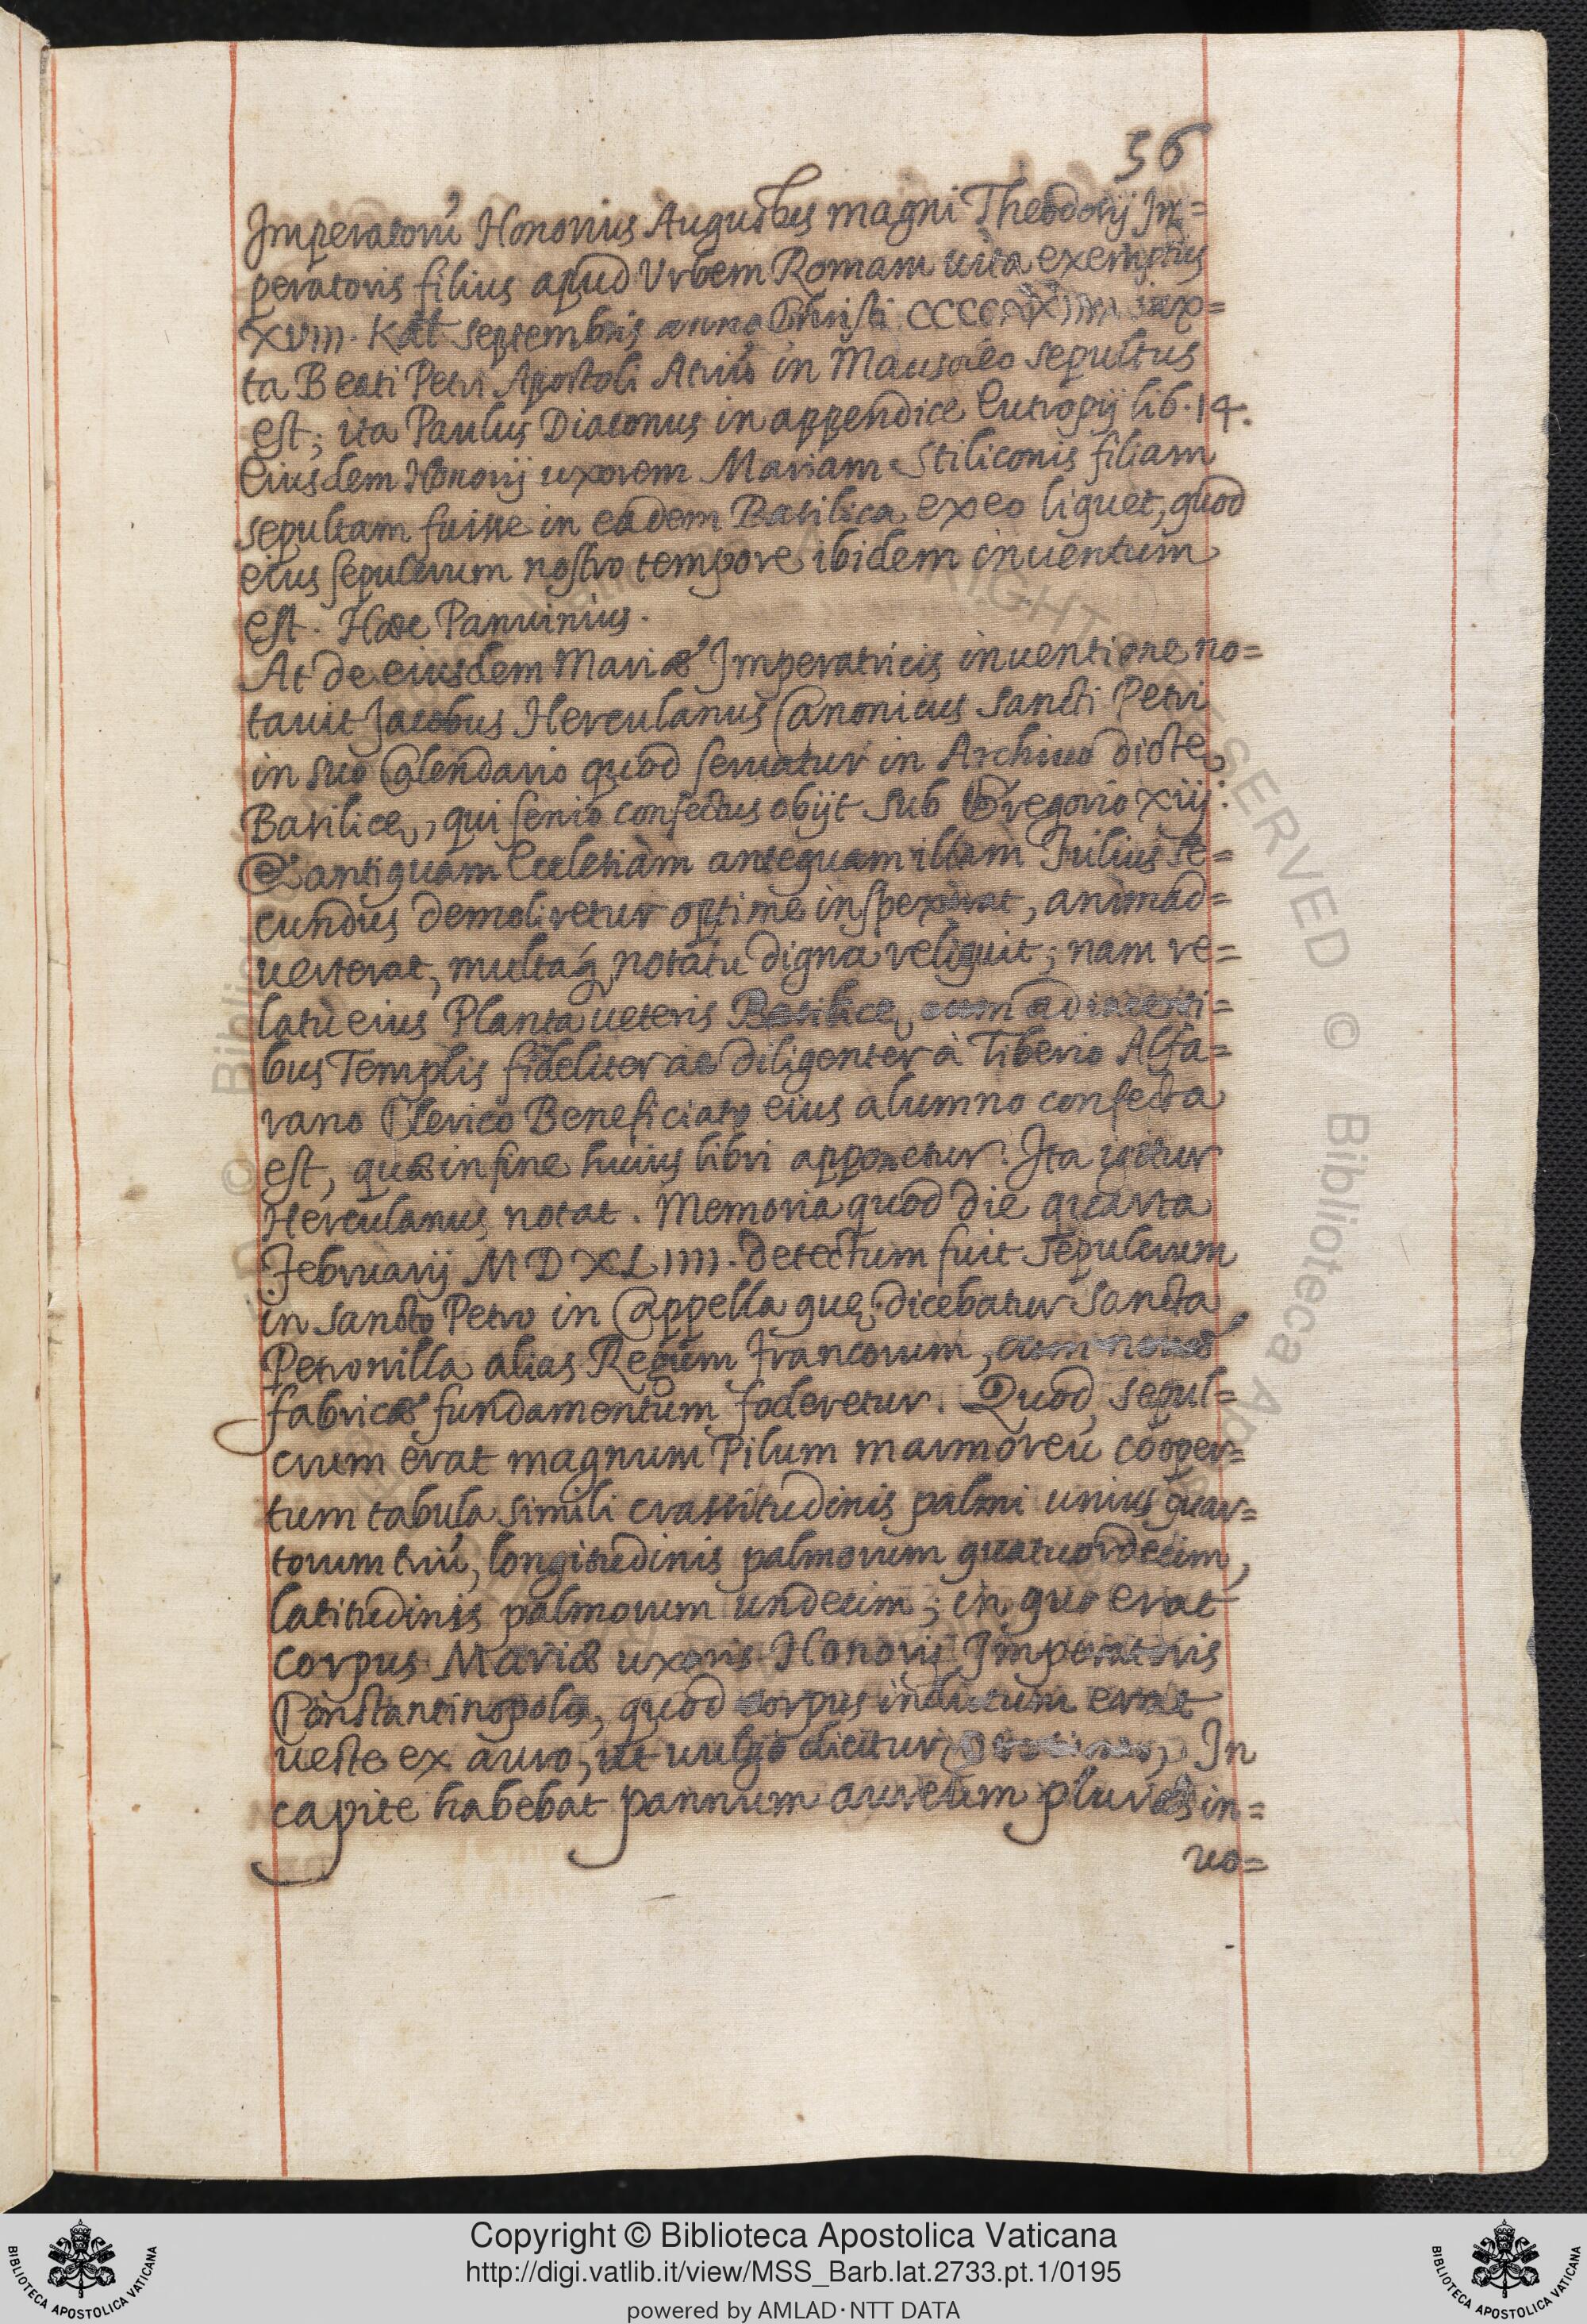 56
Imperatorũ Honorius Augustus magni Theodosij Im=
peratoris filius apud Vrbem Romam uita exemptus
XVIII. Kal septembris anno Christi iux=
ta Beati Petri Apostoli Atriũ in Mausoleo sepultus
est; ita Paulus Diaconus in appendice Eutropij lib. 14.
Eiusdem Honorij uxorem Mariam Stiliconis filiam
sepultam fuisse in eadem Basilica ex eo liquet, quod
eius sepulcrum nostro tempore ibidem inuentum
est. Hæc Panuinius.
At de eiusdem Mariæ Imperatricis inuentione no=
tauit Jacobus Herculanus Canonicus Sancti Petri
in suo Calendario quod seruatur in Archiuo dictę
Basilicę, qui senio confectus obijt sub Gregorio xiij.
Et antiquam Ecclesiam antequam illam Iulius se=
cundus demoliretur optime inspexerat, animad=
uerterat, multaq notatu digna reliquit; nam re=
latu eius Planta ueteris Basilicę cum adiacenti=
bus Templis fideliter ac diligenter à Tiberio Alfa=
rano Clerico Beneficiato eius alumno confecta
est, quæ in fine huius libri apponetur. Ita igitur
Herculanus notat. Memoria quod die quarta
Februarij MDXLIIII. detectum fuit sepulcrum
in sancto Petro in Cappella quę dicebatur Sancta
Petronilla alias Regum Francorum, cum nouæ
fabricæ fundamentum foderetur. Quod sepul=
crum erat magnum Pilum marmoreũ cooper=
tum tabula simili crassitudinis palmi unius quar=
torum triũ, longitudinis palmorum quatuordecim,
latitudinis palmorum undecim; in quo erat
corpus Mariæ uxoris Honorij Imperatoris
Constantinopolis, quod corpus indutum erat
ueste ex auro, ut uulgo dicitur In
capite habebat pannum aureum pluries in=
uo=
Copyright © Biblioteca Apostolica Vaticana
http://digi.vatlib.it/view/MSS_Barb.lat.2733.pt.1/0195
powered by AMLAD·NTT DATA
BIBLIOTECA APOSTOLICA VATICANA
BIBLIOTECA APOSTOLICA VATICANA